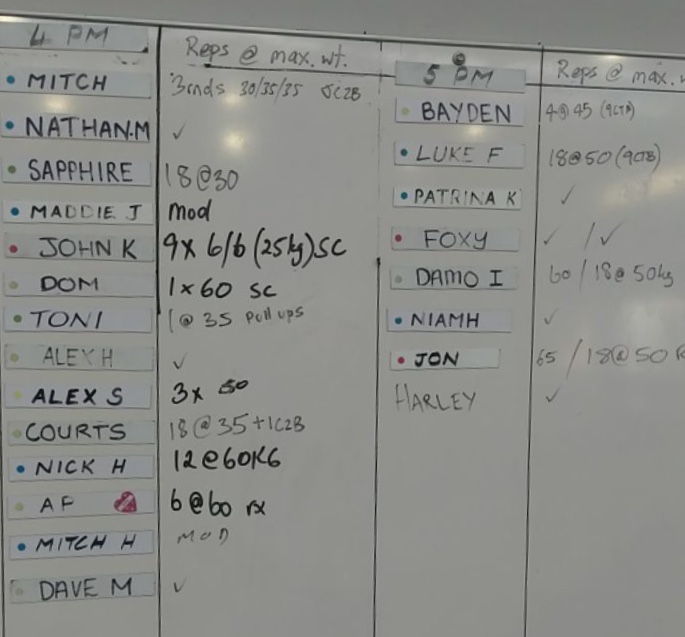 4 PM Reps @ max. wt.
MITCH 3rnds 30/35/35 JC2B
NATHAN.M ✓
SAPPHIRE 18@30
MADDIE J Mod
JOHN K 9x 6/6 (25kg) SC
DOM 1x60 SC
TONI 1@ 35 Pull ups
ALEX H ✓
ALEX S 3x 50
COURTS 18@35+1C2B
NICK H 12@60KG
AP 6@60 rx
MITCH H MOD
DAVE M ✓
5 PM Reps @ max.
BAYDEN 4@45
LUKE F 18@50
PATRINA K ✓
FOXY ✓ /✓
DAMO I 60 / 18@ 50kg
NIAMH ✓
JON 65 / 18@50
HARLEY ✓